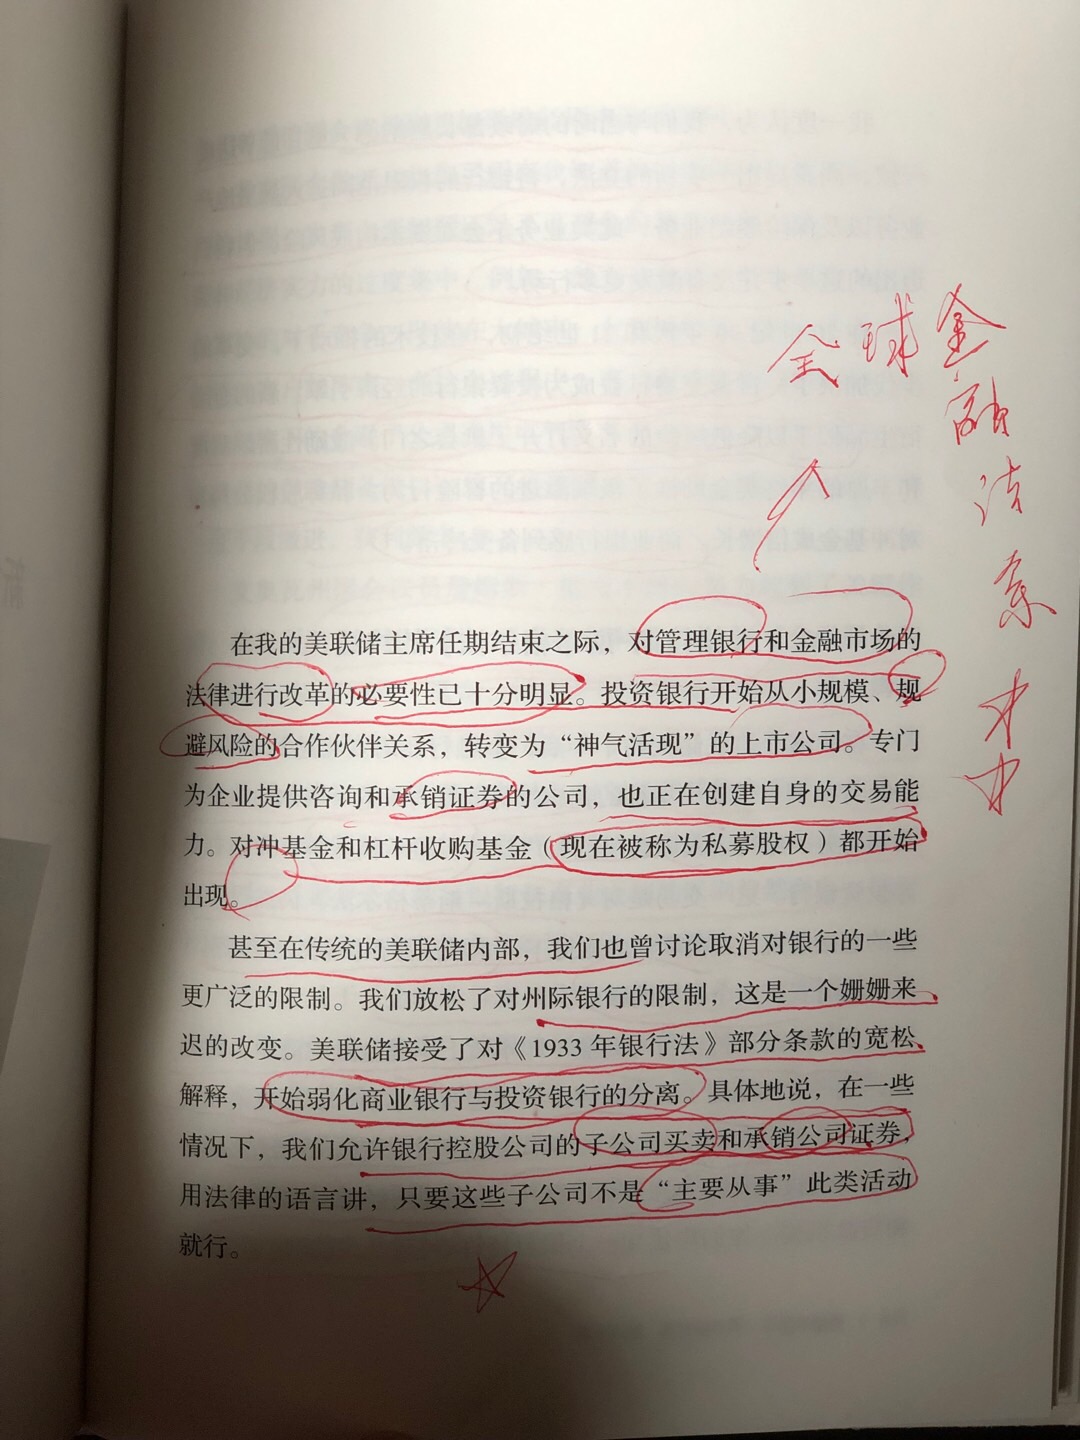 全球金
融
法
案
在我的美联储主席任期结束之际，对管理银行和金融市场的
法律进行改革的必要性已十分明显。投资银行开始从小规模、规
避风险的合作伙伴关系，转变为“神气活现”的上市公司。专门
为企业提供咨询和承销证券的公司，也正在创建自身的交易能
力。对冲基金和杠杆收购基金（现在被称为私募股权）都开始
出现。
甚至在传统的美联储内部，我们也曾讨论取消对银行的一些
更广泛的限制。我们放松了对州际银行的限制，这是一个姗姗来
迟的改变。美联储接受了对《1933年银行法》部分条款的宽松
解释，开始弱化商业银行与投资银行的分离。具体地说，在一些
情况下，我们允许银行控股公司的子公司买卖和承销公司证券，
用法律的语言讲，只要这些子公司不是“主要从事”此类活动
就行。